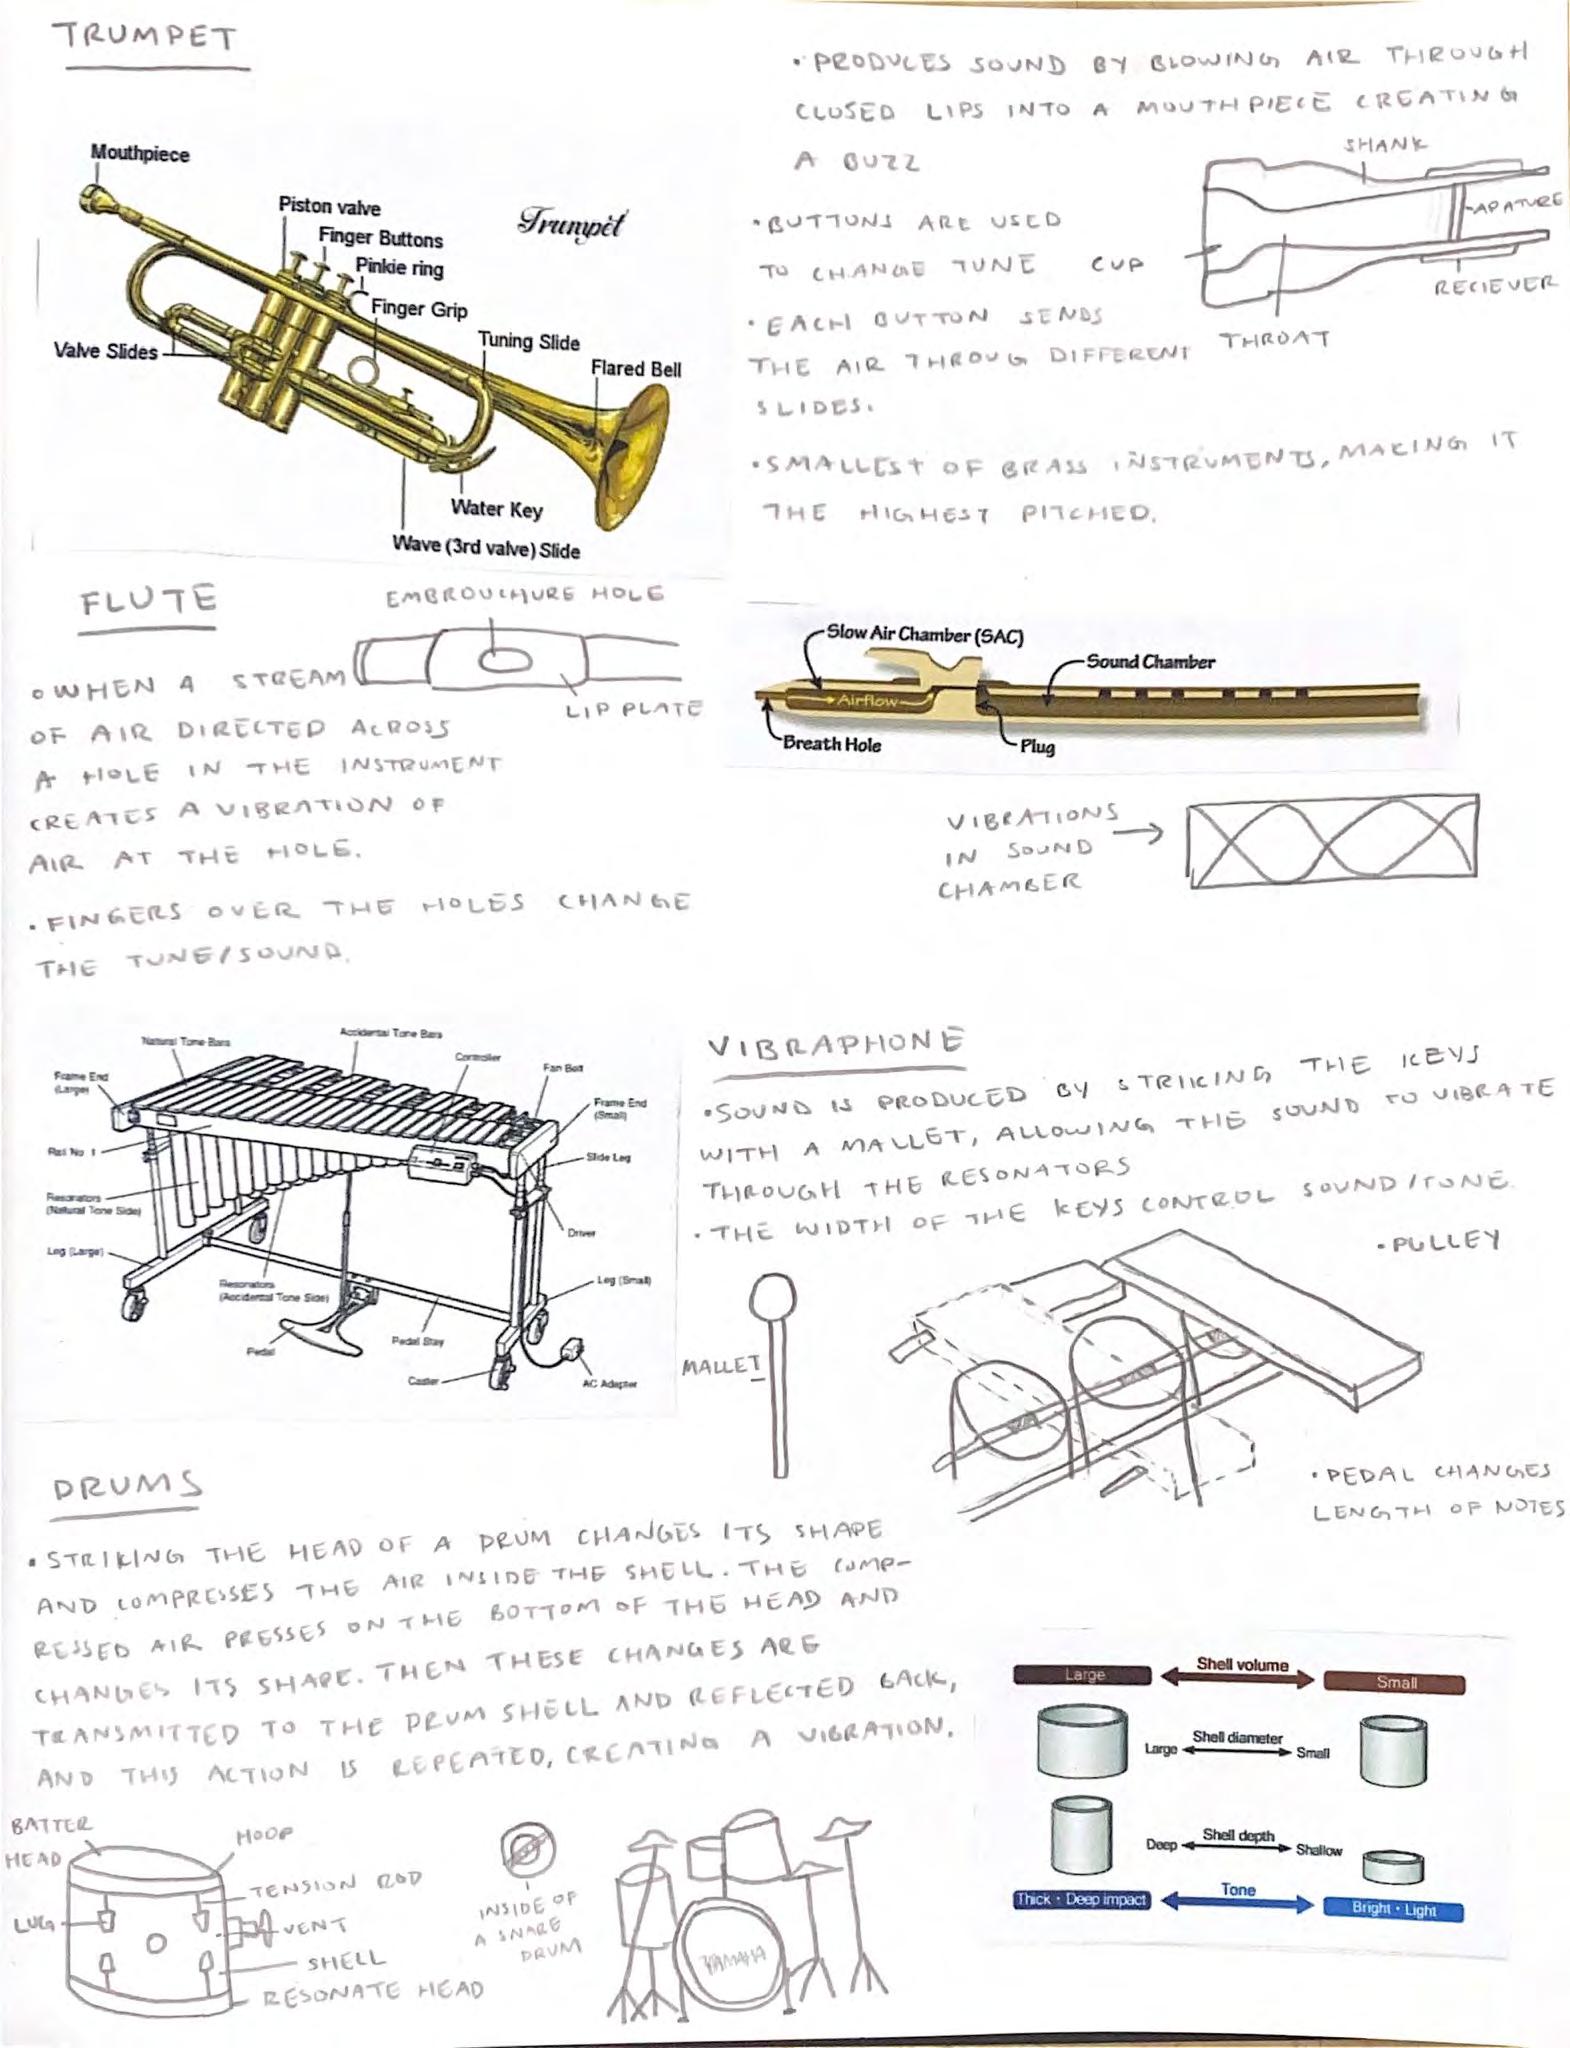 TRUMPET
Mouthpiece
Piston valve
Finger Buttons
Pinkie ring
Finger Grip
Trumpet
Valve Slides
Tuning Slide
Flared Bell
Water Key
Wave (3rd valve) Slide
• PRODUCES SOUND BY BLOWING AIR THROUGH
CLOSED LIPS INTO A MOUTHPIECE CREATING
A BUZZ
• BUTTONS ARE USED
TO CHANGE TUNE
• EACH BUTTON SENDS
THE AIR THROUG DIFFERENT
SLIDES.
• SMALLEST OF BRASS INSTRUMENTS, MAKING IT
THE HIGHEST PITCHED.
SHANK
APATURE
CUP
RECIEVER
THROAT
FLUTE
EMBROUCHURE HOLE
LIP PLATE
• WHEN A STREAM
OF AIR DIRECTED ACROSS
A HOLE IN THE INSTRUMENT
CREATES A VIBRATION OF
AIR AT THE HOLE.
• FINGERS OVER THE HOLES CHANGE
THE TUNE/SOUND.
Slow Air Chamber (SAC)
Sound Chamber
Airflow
Breath Hole
Plug
VIBRATIONS
IN SOUND
CHAMBER
Natural Tone Bars
Accidental Tone Bars
Controller
Fan Belt
Frame End
(Large)
Frame End
(Small)
Rail No. 1
Slide Leg
Resonators
(Natural Tone Side)
Driver
Leg (Large)
Resonators
(Accidental Tone Side)
Leg (Small)
Pedal
Pedal Stay
Caster
AC Adapter
VIBRAPHONE
• SOUND IS PRODUCED BY STRIKING THE KEYS
WITH A MALLET, ALLOWING THE SOUND TO VIBRATE
THROUGH THE RESONATORS
• THE WIDTH OF THE KEYS CONTROL SOUND/TONE.
• PULLEY
MALLET
• PEDAL CHANGES
LENGTH OF NOTES
DRUMS
• STRIKING THE HEAD OF A DRUM CHANGES ITS SHAPE
AND COMPRESSES THE AIR INSIDE THE SHELL. THE COMP-
RESSED AIR PRESSES ON THE BOTTOM OF THE HEAD AND
CHANGES ITS SHAPE. THEN THESE CHANGES ARE
TRANSMITTED TO THE DRUM SHELL AND REFLECTED BACK,
AND THIS ACTION IS REPEATED, CREATING A VIBRATION.
BATTER
HEAD
HOOP
TENSION ROD
LUG
VENT
SHELL
RESONATE HEAD
INSIDE OF
A SNARE
DRUM
YAMAHA
Large
Shell volume
Small
Shell diameter
Large
Small
Shell depth
Deep
Shallow
Thick • Deep impact
Tone
Bright • Light